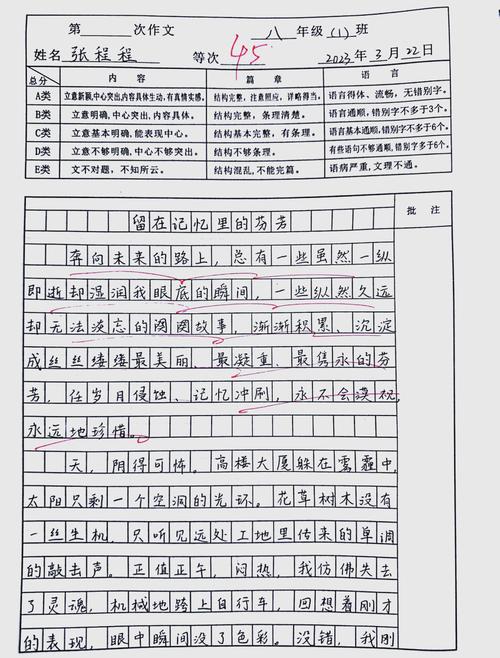 第 次作文 八 年级 (1) 班
姓名 张程程 等次 45 2023 年 3 月 22 日
总分 内 容 篇 章 语 言
A类 立意新颖,中心突出,内容具体生动,有真情实感。 结构完整,注意照应,详略得当。 语言得体、流畅,无错别字。
B类 立意明确,中心突出,内容具体。 结构完整,条理清楚。 语言通顺,错别字不多于3个。
C类 立意基本明确,能表现中心。 结构基本完整,有条理。 语言基本通顺,错别字不多于6个。
D类 立意不够明确,中心不够突出。 结构不够条理。 有些语句不够通顺,错别字不多于6个。
E类 文不对题,不知所云。 结构混乱,不能完篇。 语病严重,文理不通。
批 注
留在记忆里的芬芳
奔向未来的路上,总有一些虽然一纵
即逝却湿润我眼底的瞬间,一些纵然久远
却无法淡忘的图图故事,渐渐积累、沉淀
成丝丝缕缕最美丽、最凝重、最隽永的芬
芳,任岁月侵蚀、记忆冲刷,永不会漠视,
永远地珍惜。
天,阴得可怖。高楼大厦躲在雾霾中,
太阳只剩一个空洞的光环。花草树木没有
一丝生机,只听见远处工地里传来的单调
的敲击声。正值正午,闷热,我仿佛失去
了灵魂,机械地跨上自行车,回想着刚才
的表现,眼中瞬间没了色彩。没错,我刚